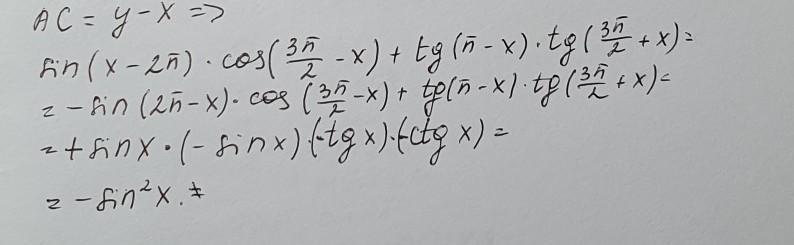 AC = y - x =>
sin(x - 2π) · cos(3π/2 - x) + tg(π - x) · tg(3π/2 + x) =
= - sin(2π - x) · cos(3π/2 - x) + tg(π - x) · tg(3π/2 + x) =
= + sin x · (- sin x) (-tg x) · (-ctg x) =
= - sin²x . ≠